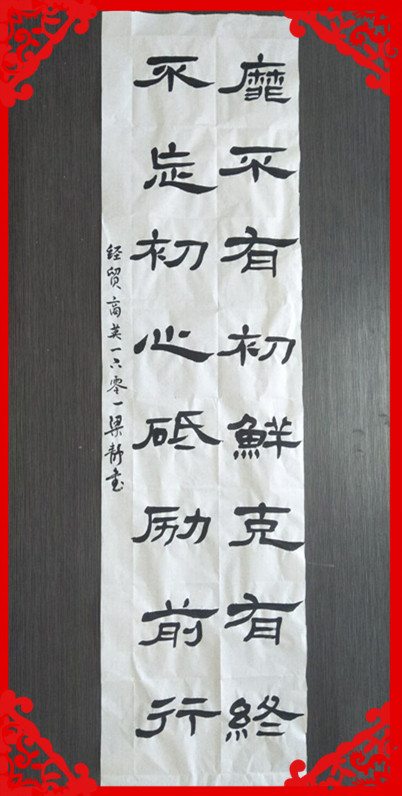 靡不有初鮮克有終
不忘初心砥励前行
经贸商英一六零一梁静书